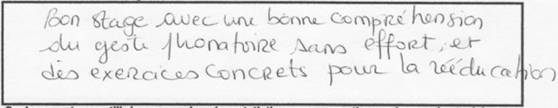 Bon stage avec une bonne compréhension
du geste phonatoire sans effort, et
des exercices concrets pour la rééducation